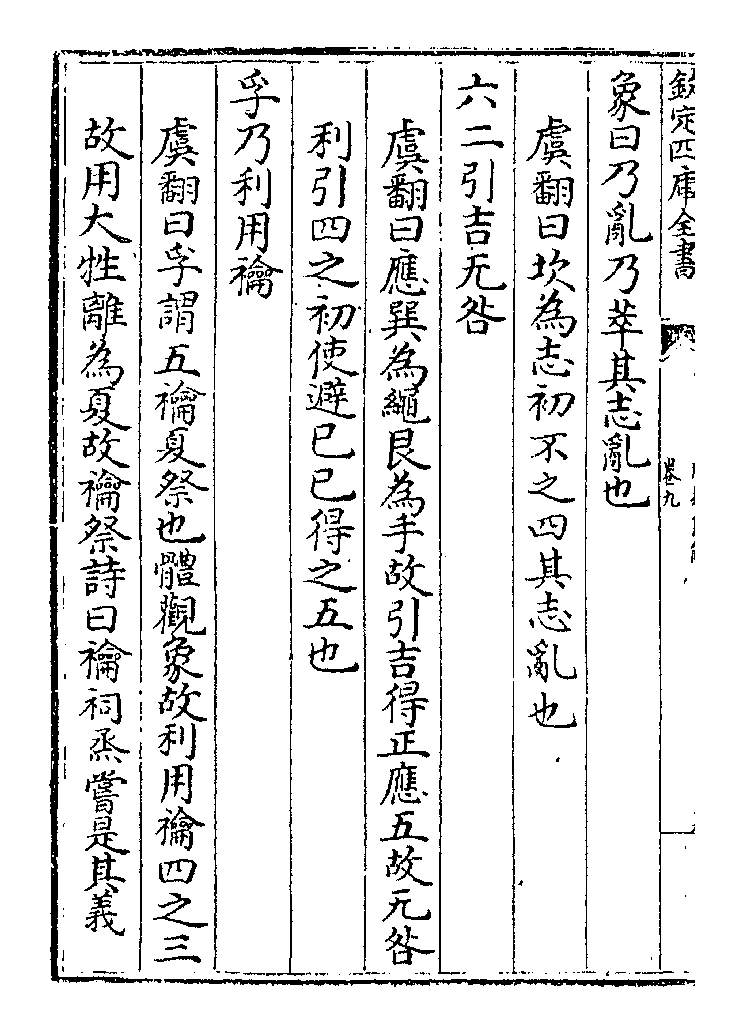 欽定四庫全書
卷九
象曰乃亂乃萃其志亂也
虞翻曰坎為志初不之四其志亂也
六二引吉无咎
虞翻曰應巽為繩艮為手故引吉得正應五故无咎
利引四之初使避已已得之五也
孚乃利用禴
虞翻曰孚謂五禴夏祭也體觀象故利用禴四之三
故用大牲離為夏故禴祭詩曰禴祠烝嘗是其義